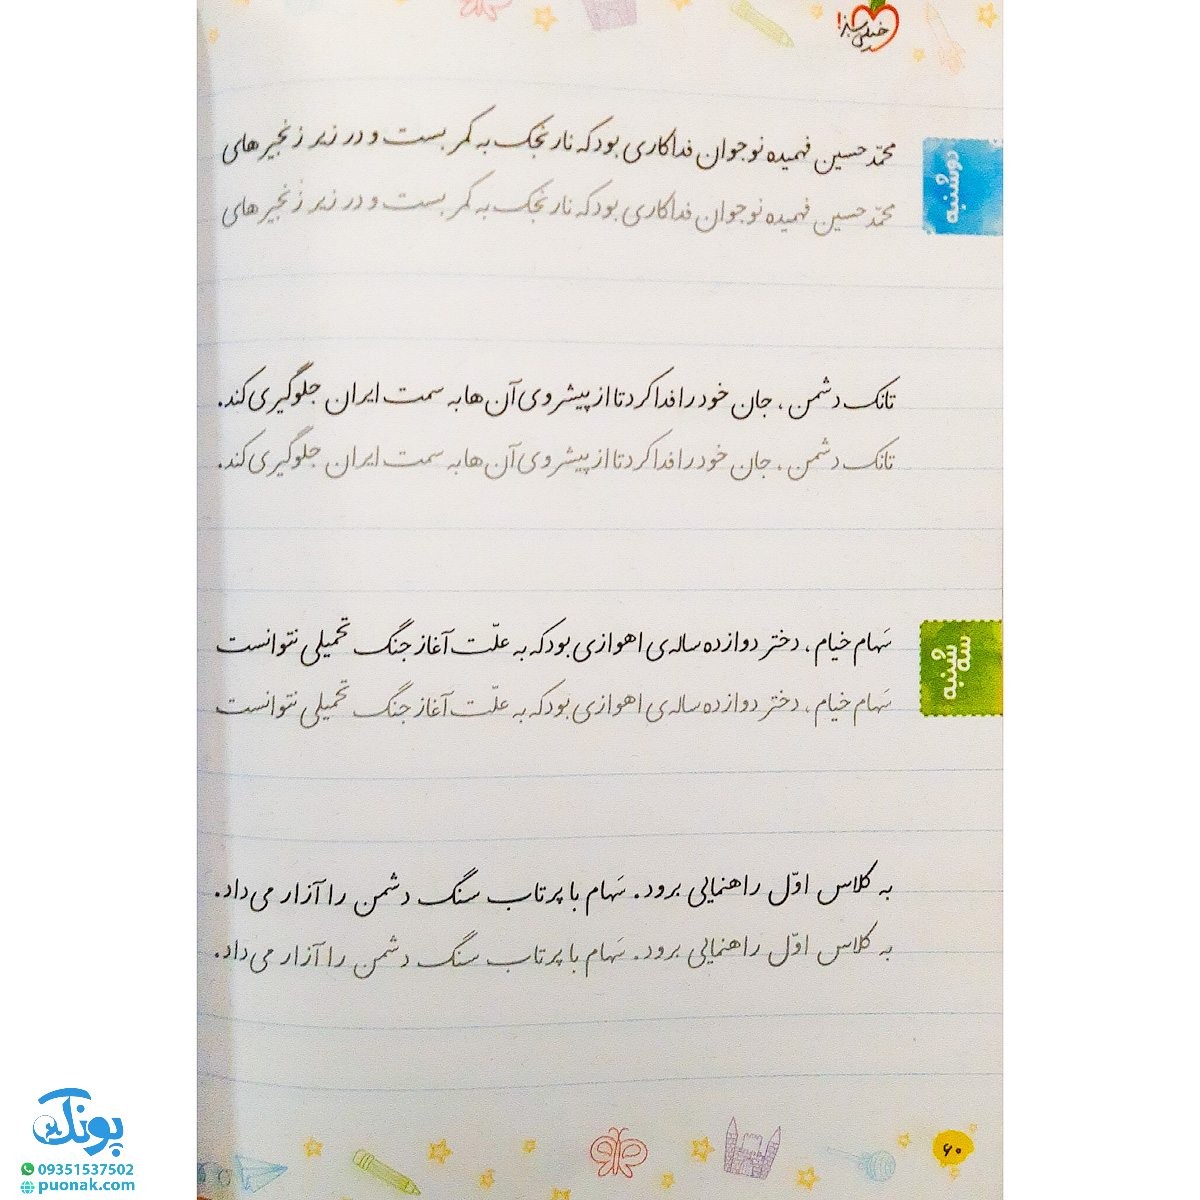 خیلی سبز!
دوشنبه
محمّدحسین فهمیده نوجوان فداکاری بود که نارنجک به کمر بست و در زیر زنجیرهای
محمّدحسین فهمیده نوجوان فداکاری بود که نارنجک به کمر بست و در زیر زنجیرهای
تانک دشمن، جان خود را فدا کرد تا از پیشروی آن‌ها به سمت ایران جلوگیری کند.
تانک دشمن، جان خود را فدا کرد تا از پیشروی آن‌ها به سمت ایران جلوگیری کند.
سه شُنبه
سَهام خیام، دختر دوازده ساله‌ی اهوازی بود که به علّت آغاز جنگ تحمیلی نتوانست
سَهام خیام، دختر دوازده ساله‌ی اهوازی بود که به علّت آغاز جنگ تحمیلی نتوانست
به کلاس اوّل راهنمایی برود. سَهام با پرتاب سنگ دشمن را آزار می‌داد.
به کلاس اوّل راهنمایی برود. سَهام با پرتاب سنگ دشمن را آزار می‌داد.
۶۰
پونک
09351537502
puonak.com